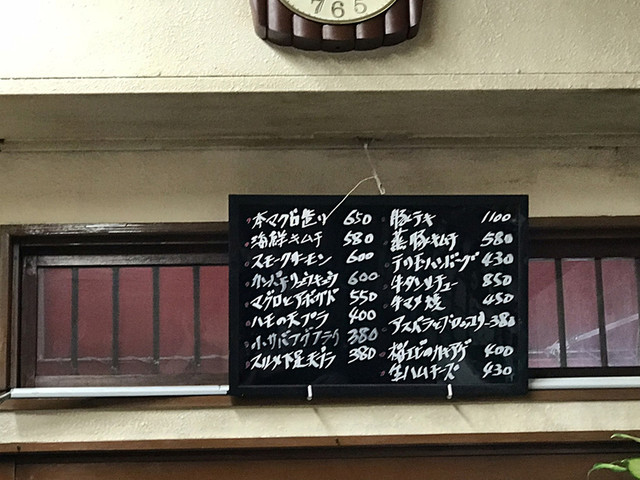 7 6 5
本マグロ造り 650
海鮮キムチ 580
スモークサーモン 600
カンパチリュウキュウ 600
マグロとアボガド 550
ハモの天プラ 400
小サバフグアラク 380
スルメ下足天プラ 380
豚テキ 1100
蒸豚キムチ 580
テリモハンバーグ 430
牛タンシチュー 850
牛マメ焼 450
アスパラとブロッコリー 380
桜エビのカキアゲ 400
生ハムチーズ 430